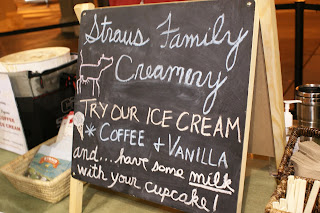 Straus Family
Creamery
TRY OUR ICE CREAM
* COFFEE + VANILLA
and...have some milk
with your cupcake!
COFFEE
ICE CREAM